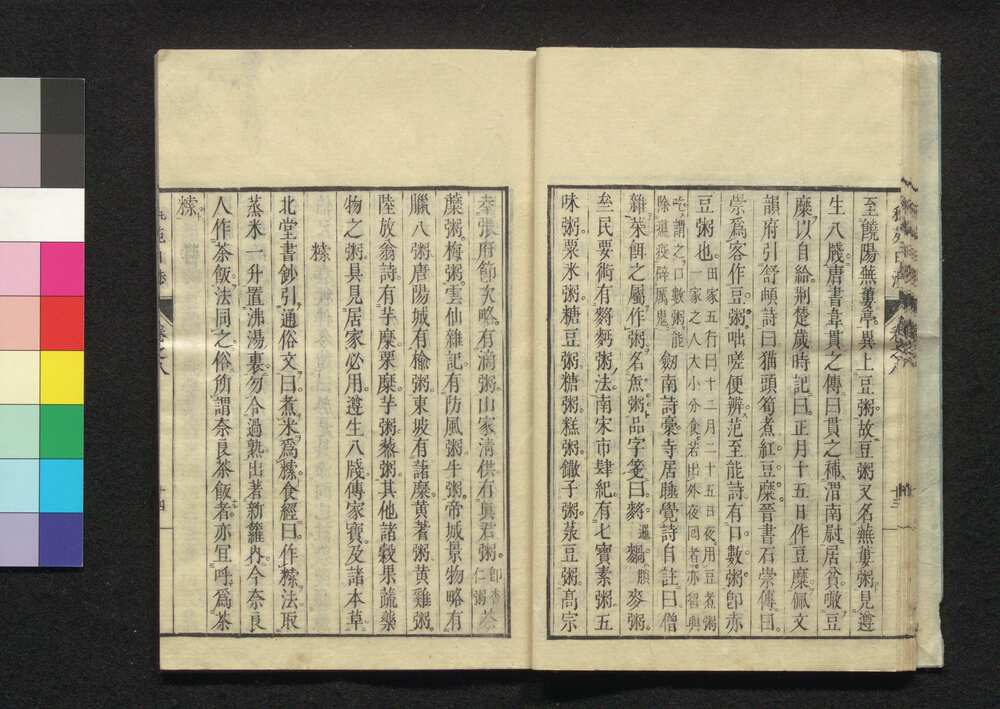 至饒陽蕪蔞亭異上豆粥故豆粥又名蕪蔞粥見遵
生八牋唐書韋貫之傳曰貫之補渭南尉居貧噉豆
糜以自給荊楚歲時記曰正月十五日作豆糜佩文
韻府引舒頔詩曰猫頭筍煮紅豆糜晉書石崇傳曰
崇爲客作豆粥咄嗟便辨范至能詩有口數粥即赤
豆粥也田家五行曰十二月二十五日夜用豆煮粥
一家之人大小分食若出外夜回者亦留與
吃謂之口數粥能
除瘟疫辟厲鬼劒南詩豪寺居睡覺詩自註曰僧
雜菜餌之屬作粥名魚粥品字箋曰麥粥
民要術有粥法南宋市肆紀有七寶素粥五
味粥粟米粥糖豆粥糖粥糕粥饊子粥菉豆粥高宗
幸張府節次略有滴粥山家清供有眞君粥即杏仁粥荼
蘼粥梅粥雲仙雜記有防風粥牛粥帝城景物略有
臘八粥唐陽城有楡粥東坡有藷糜黄蓍粥黄雞粥
陸放翁詩有芋糜栗糜芋粥藜粥其他諸穀果蔬藥
物之粥具見居家必用遵生八牋傳家寶及諸本草
𥻦
北堂書鈔引通俗文曰煮米爲𥻦食經曰作𥻦法取
蒸米一升置沸湯裏勿令過熟出著新籮内今奈良
人作茶飯法同之俗所謂奈良茶飯者亦宜呼爲茶
𥻦
卷之八
十四